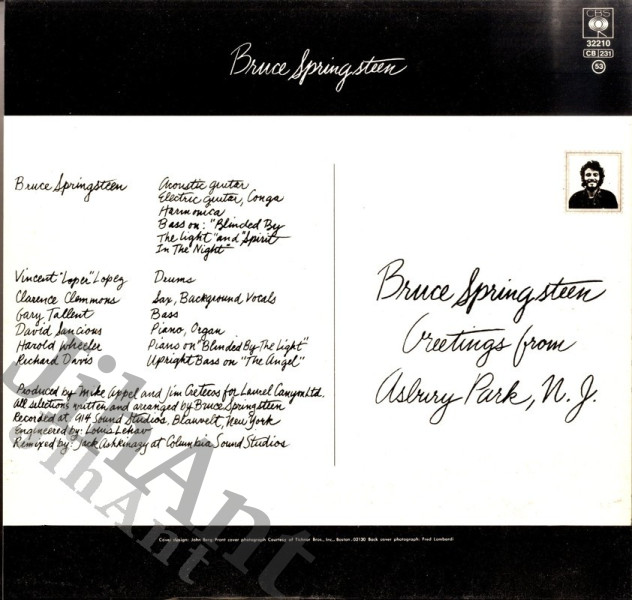 Bruce Springsteen
CBS
32210
CB 231
53
Bruce Springsteen
Acoustic guitar
Electric guitar, Conga
Harmonica
Bass on: "Blinded By
The Light" and "Spirit
In The Night"
Vincent "Loper" Lopez Drums
Clarence Clemmons Sax, Background Vocals
Gary Tallent Bass
David Sancious Piano, Organ
Harold Wheeler Piano on "Blinded By The Light"
Richard Davis Upright Bass on "The Angel"
Produced by Mike Appel and Jim Cretecos for Laurel Canyon Ltd.
All selections written and arranged by Bruce Springsteen
Recorded at 914 Sound Studios, Blauvelt, New York
Engineered by: Louis Lahav
Remixed by: Jack Ashkinazy at Columbia Sound Studios
Bruce Springsteen
Greetings from
Asbury Park, N.J.
Cover design: John Berg Front cover photograph Courtesy of Tichnor Bros., Inc., Boston, 02130 Back cover photograph: Fred Lombardi